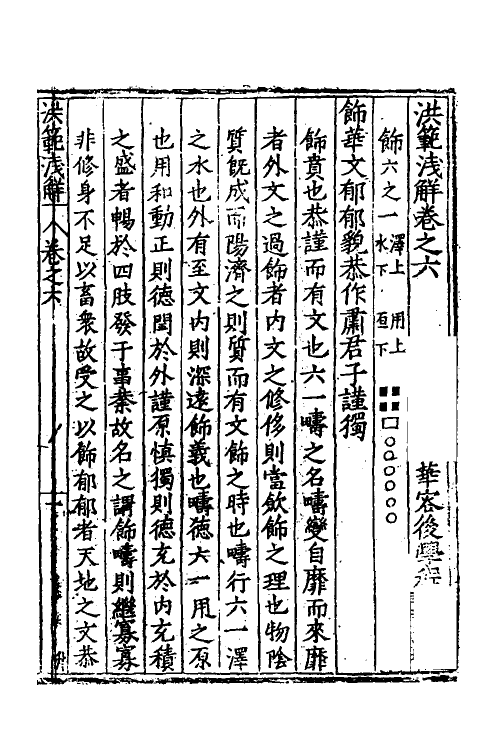 洪範淺解卷之六
華容後學程
飾六之一 澤上水下 用上亙下
飾華文郁郁貌恭作肅君子謹獨
飾賁也恭謹而有文也六一疇之名疇變自靡而來靡
者外文之過飾者内文之修侈則當斂飾之理也物陰
質旣成而陽濟之則質而有文飾之時也疇行六一澤
之水也外有至文内則深遠飾義也疇德六一用之原
也用和動正則德閏於外謹原慎獨則德充於内充積
之盛者暢於四肢發于事業故名之謂飾疇則繼寡寡
非修身不足以畜衆故受之以飾郁郁者天地之文恭
洪範淺解 卷之六